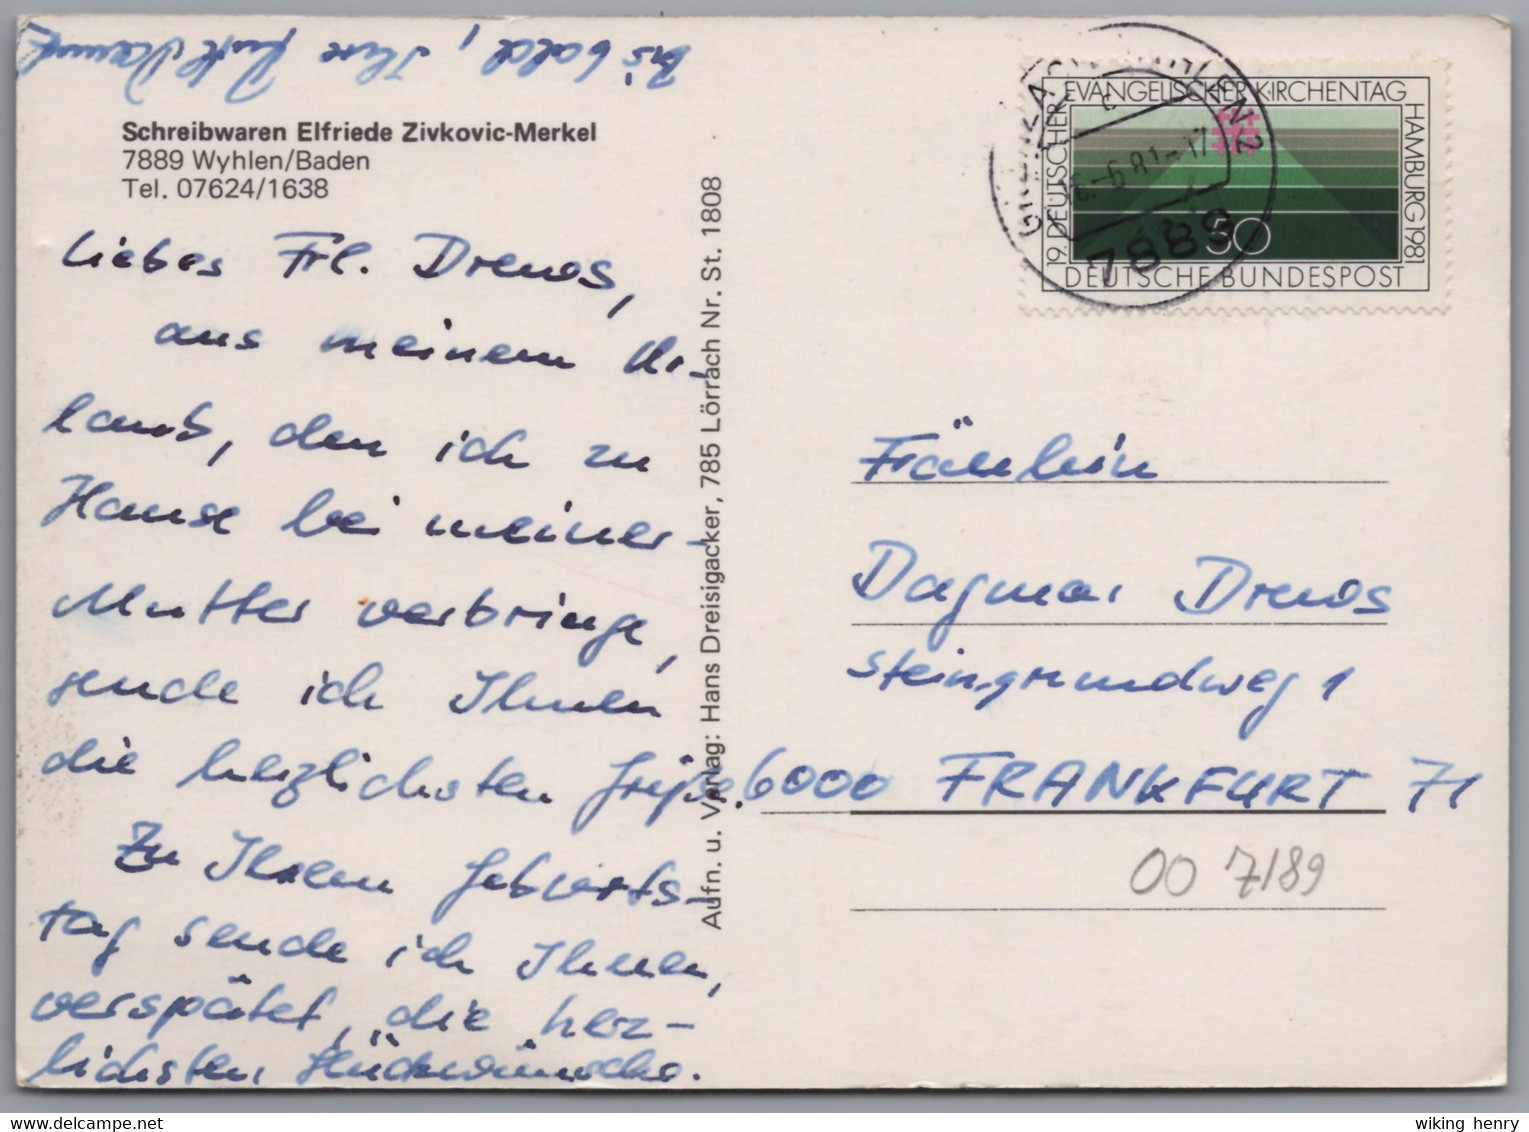 Bis bald, Ihre Ruth
Schreibwaren Elfriede Zivkovic-Merkel
7889 Wyhlen/Baden
Tel. 07624/1638
Liebes Frl. Drews,
aus meinem Ur-
laub, den ich zu
Hause bei meiner
Mutter verbringe,
sende ich Ihnen
die herzlichsten Grüße.
Zu Ihrem Geburts-
tag sende ich Ihnen,
verspätet, die herz-
lichsten Glückwünsche.
Aufn. u. Verlag: Hans Dreisigacker, 785 Lörrach Nr. St. 1808
19. DEUTSCHER EVANGELISCHER KIRCHENTAG HAMBURG 1981
50
DEUTSCHE BUNDESPOST
GRENZACH-WYHLEN 2
-6.81-17
7889
Fräulein
Dagmar Drews
Steingrundweg 1
6000 FRANKFURT 71
00 7/89
wiking henry